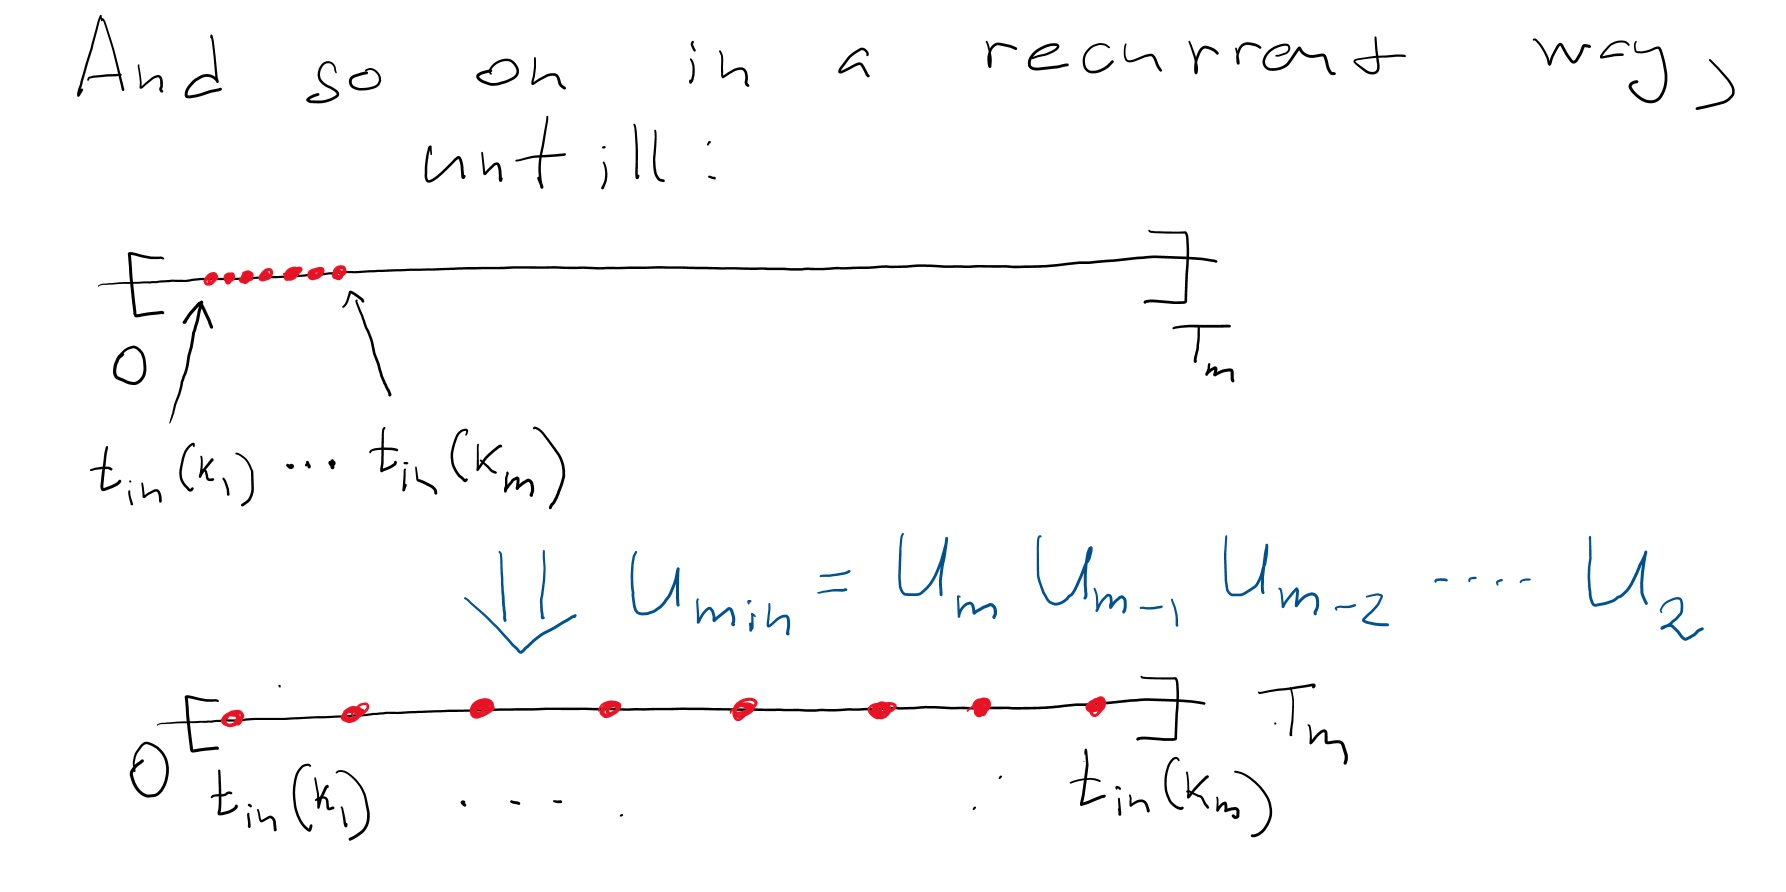 And so on in a recurrent way,
untill:
0 T_m
t_in(k_1) ... t_in(k_m)
U_min = U_m U_m-1 U_m-2 .... U_2
0 T_m
t_in(k_1) .... t_in(k_m)